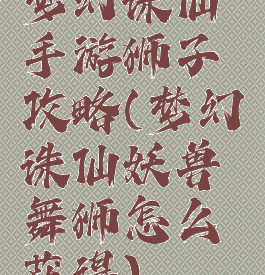 梦幻诛仙
手游狮子
攻略(梦幻
诛仙妖兽
舞狮怎么
获得)